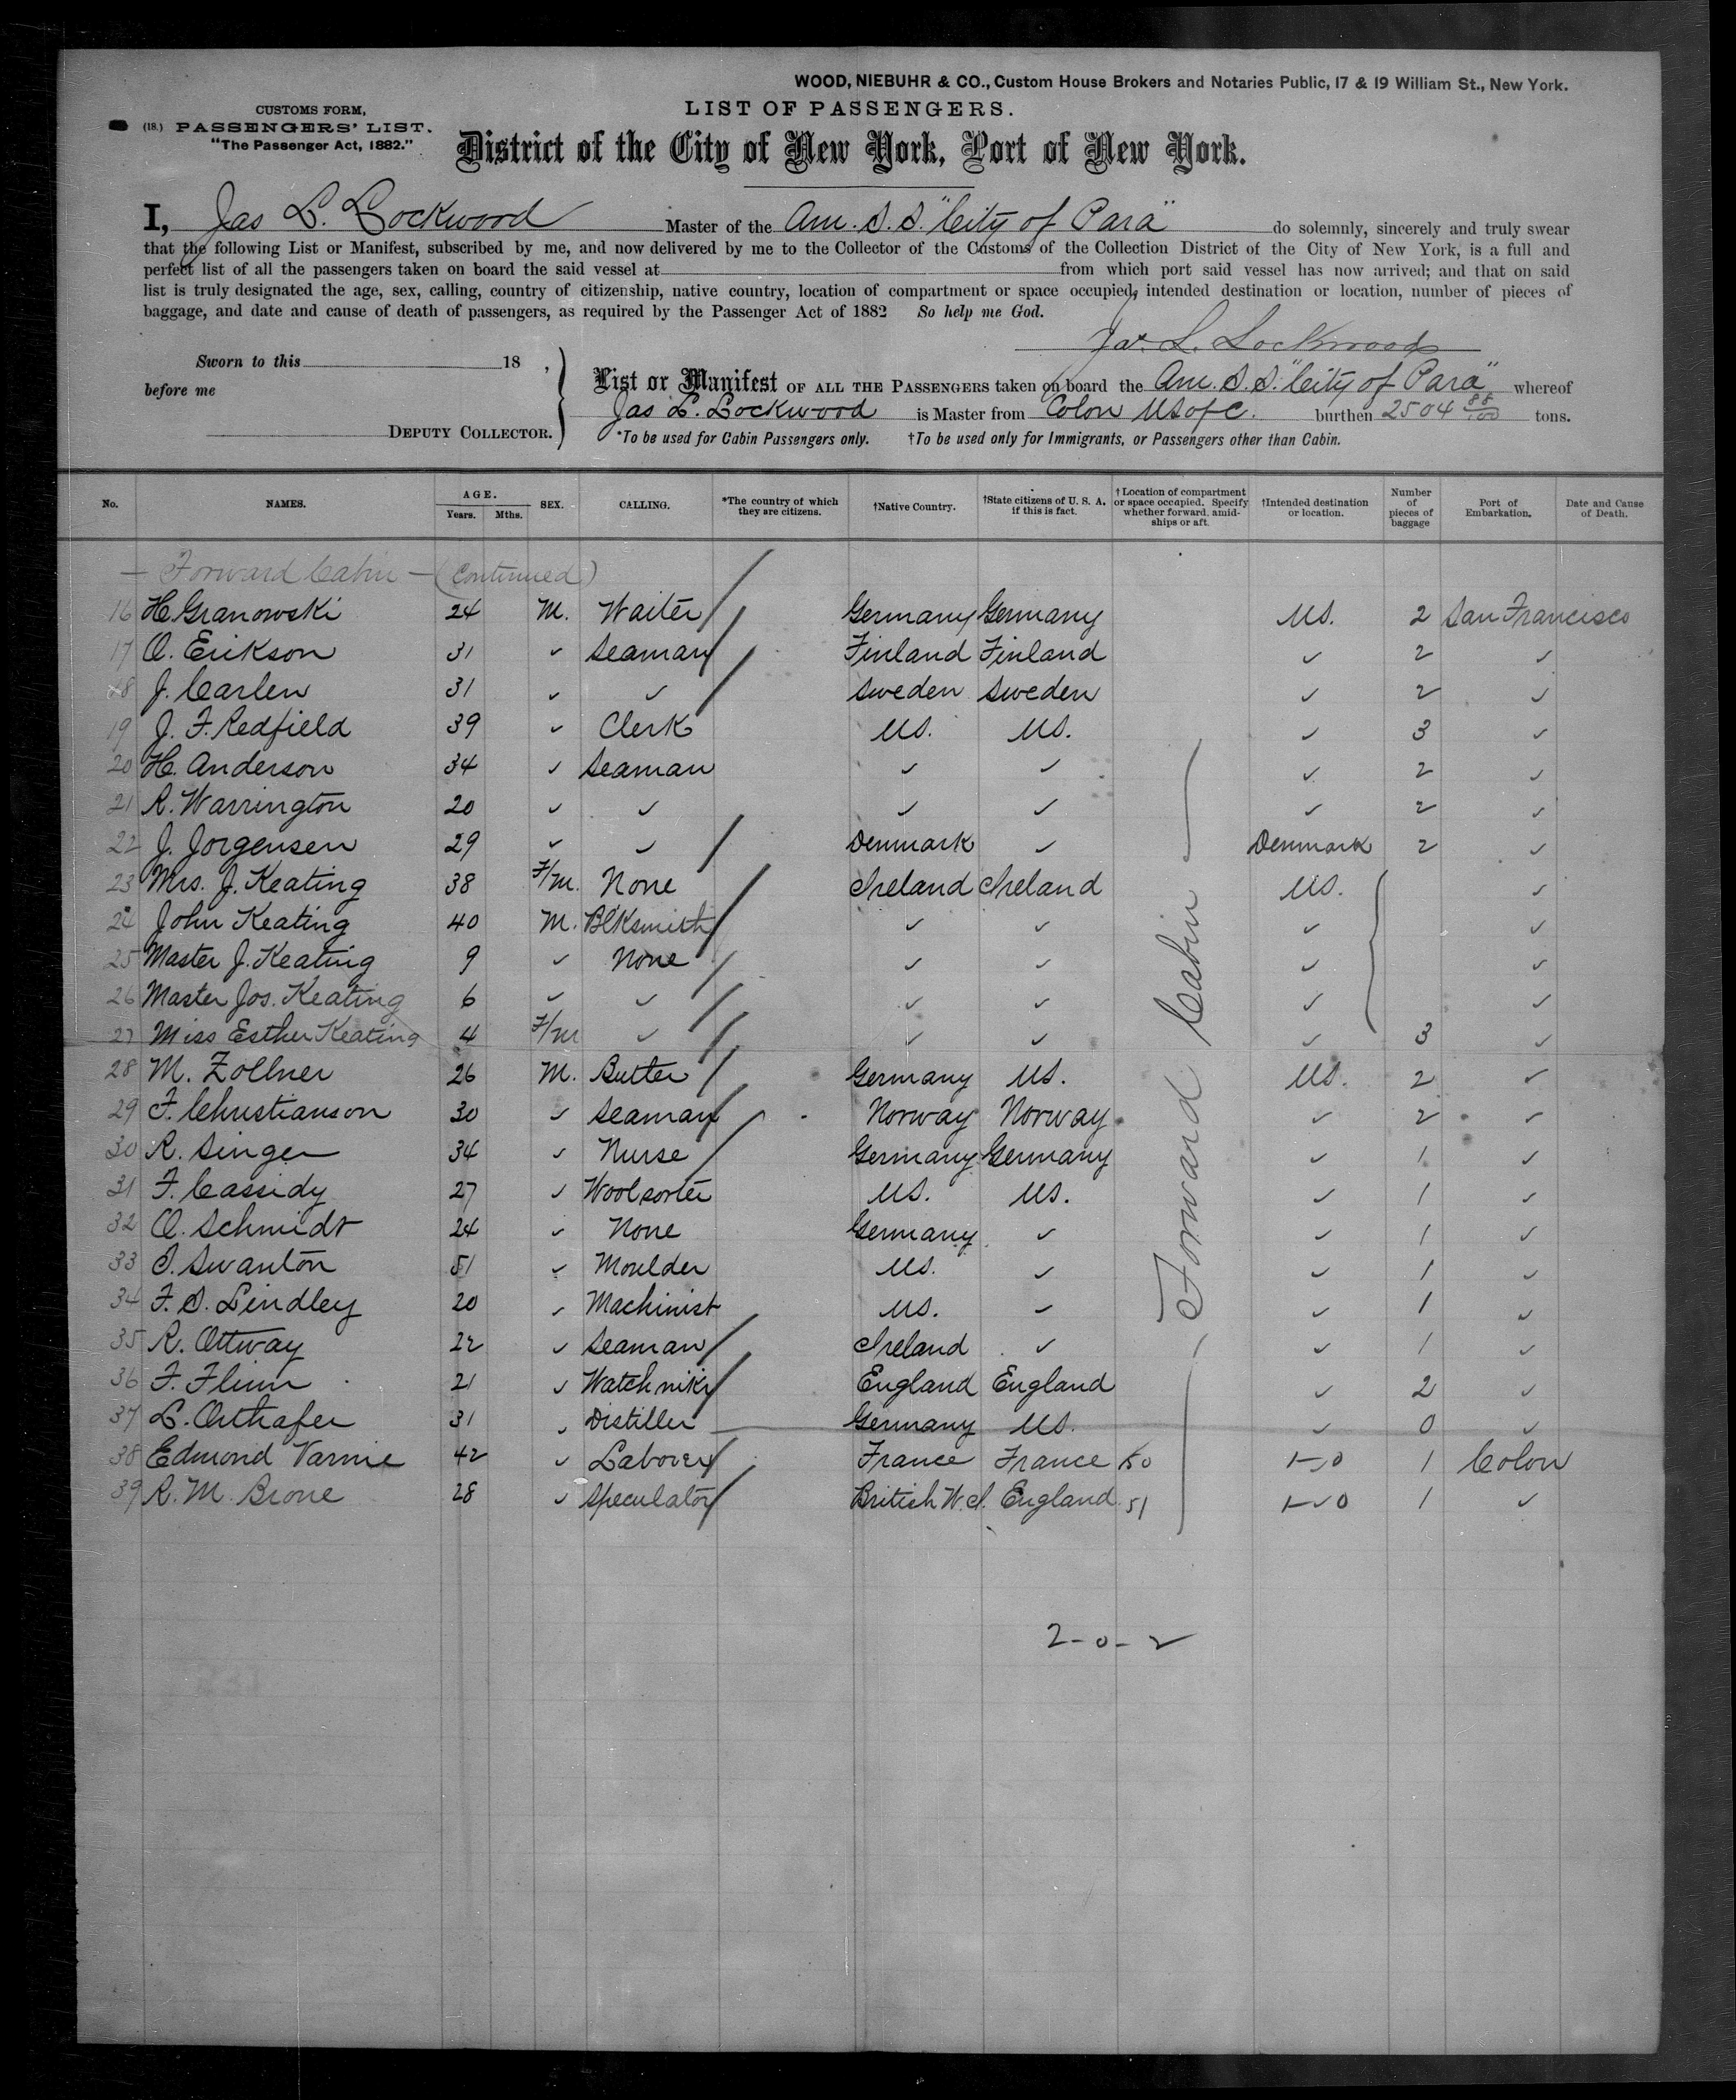 WOOD, NIEBUHR & CO., Custom House Brokers and Notaries Public, 17 & 19 William St., New York.
CUSTOMS FORM,
(18.) PASSENGERS' LIST.
"The Passenger Act, 1882."
LIST OF PASSENGERS.
District of the City of New York, Port of New York.
I, Jas L. Lockwood Master of the Am. S. S. "City of Para" do solemnly, sincerely and truly swear
that the following List or Manifest, subscribed by me, and now delivered by me to the Collector of the Customs of the Collection District of the City of New York, is a full and
perfect list of all the passengers taken on board the said vessel at from which port said vessel has now arrived; and that on said
list is truly designated the age, sex, calling, country of citizenship, native country, location of compartment or space occupied, intended destination or location, number of pieces of
baggage, and date and cause of death of passengers, as required by the Passenger Act of 1882 So help me God.
Jas. L. Lockwood
Sworn to this 18 ,
before me
DEPUTY COLLECTOR.
List or Manifest OF ALL THE PASSENGERS taken on board the Am. S. S. "City of Para" whereof
Jas L. Lockwood is Master from Colon US of C. burthen 2504 88/100 tons.
*To be used for Cabin Passengers only. †To be used only for Immigrants, or Passengers other than Cabin.
No. NAMES. AGE. Years. Mths. SEX. CALLING. *The country of which they are citizens. †Native Country. †State citizens of U. S. A. if this is fact. †Location of compartment or space occupied. Specify whether forward, amidships or aft. †Intended destination or location. Number of pieces of baggage Port of Embarkation. Date and Cause of Death.
— Forward Cabin — (Continued)
16 H. Granowski 24 M. Waiter Germany Germany US. 2 San Francisco
17 O. Erikson 31 ✓ Seaman Finland Finland ✓ 2 ✓
18 J. Carlen 31 ✓ ✓ Sweden Sweden ✓ 2 ✓
19 J. F. Redfield 39 ✓ Clerk US. US. ✓ 3 ✓
20 H. Anderson 34 ✓ Seaman ✓ ✓ ✓ 2 ✓
21 R. Warrington 20 ✓ ✓ ✓ ✓ ✓ 2 ✓
22 J. Jorgensen 29 ✓ ✓ Denmark ✓ Denmark 2 ✓
23 Mrs. J. Keating 38 F/m. None Ireland Ireland US. ✓
24 John Keating 40 M. Blksmith ✓ ✓ ✓ ✓
25 Master J. Keating 9 ✓ None ✓ ✓ ✓ ✓
26 Master Jos. Keating 6 ✓ ✓ ✓ ✓ ✓ ✓
27 Miss Esther Keating 4 F/m ✓ ✓ ✓ ✓ 3 ✓
28 M. Zollner 26 M. Butler Germany US. US. 2 ✓
29 F. Christianson 30 ✓ Seaman Norway Norway ✓ 2 ✓
30 R. Singer 34 ✓ Nurse Germany Germany ✓ 1 ✓
31 F. Cassidy 27 ✓ Woolsorter US. US. ✓ 1 ✓
32 O. Schmidt 24 ✓ None Germany ✓ ✓ 1 ✓
33 Swanton 51 ✓ Moulder US. ✓ ✓ 1 ✓
34 F. S. Lindley 20 ✓ Machinist US. ✓ ✓ 1 ✓
35 R. Ottway 22 ✓ Seaman Ireland ✓ ✓ 1 ✓
36 F. Flinn 21 ✓ England England ✓ 2 ✓
37 L. Orthafer 31 ✓ Distiller Germany US. ✓ 0 ✓
38 Edmond Varnie 42 ✓ Laborer France France 50 1 Colon
39 R. M. Brone 28 ✓ Speculator British W. I. England 51 1 ✓
Forward Cabin
2-0-2